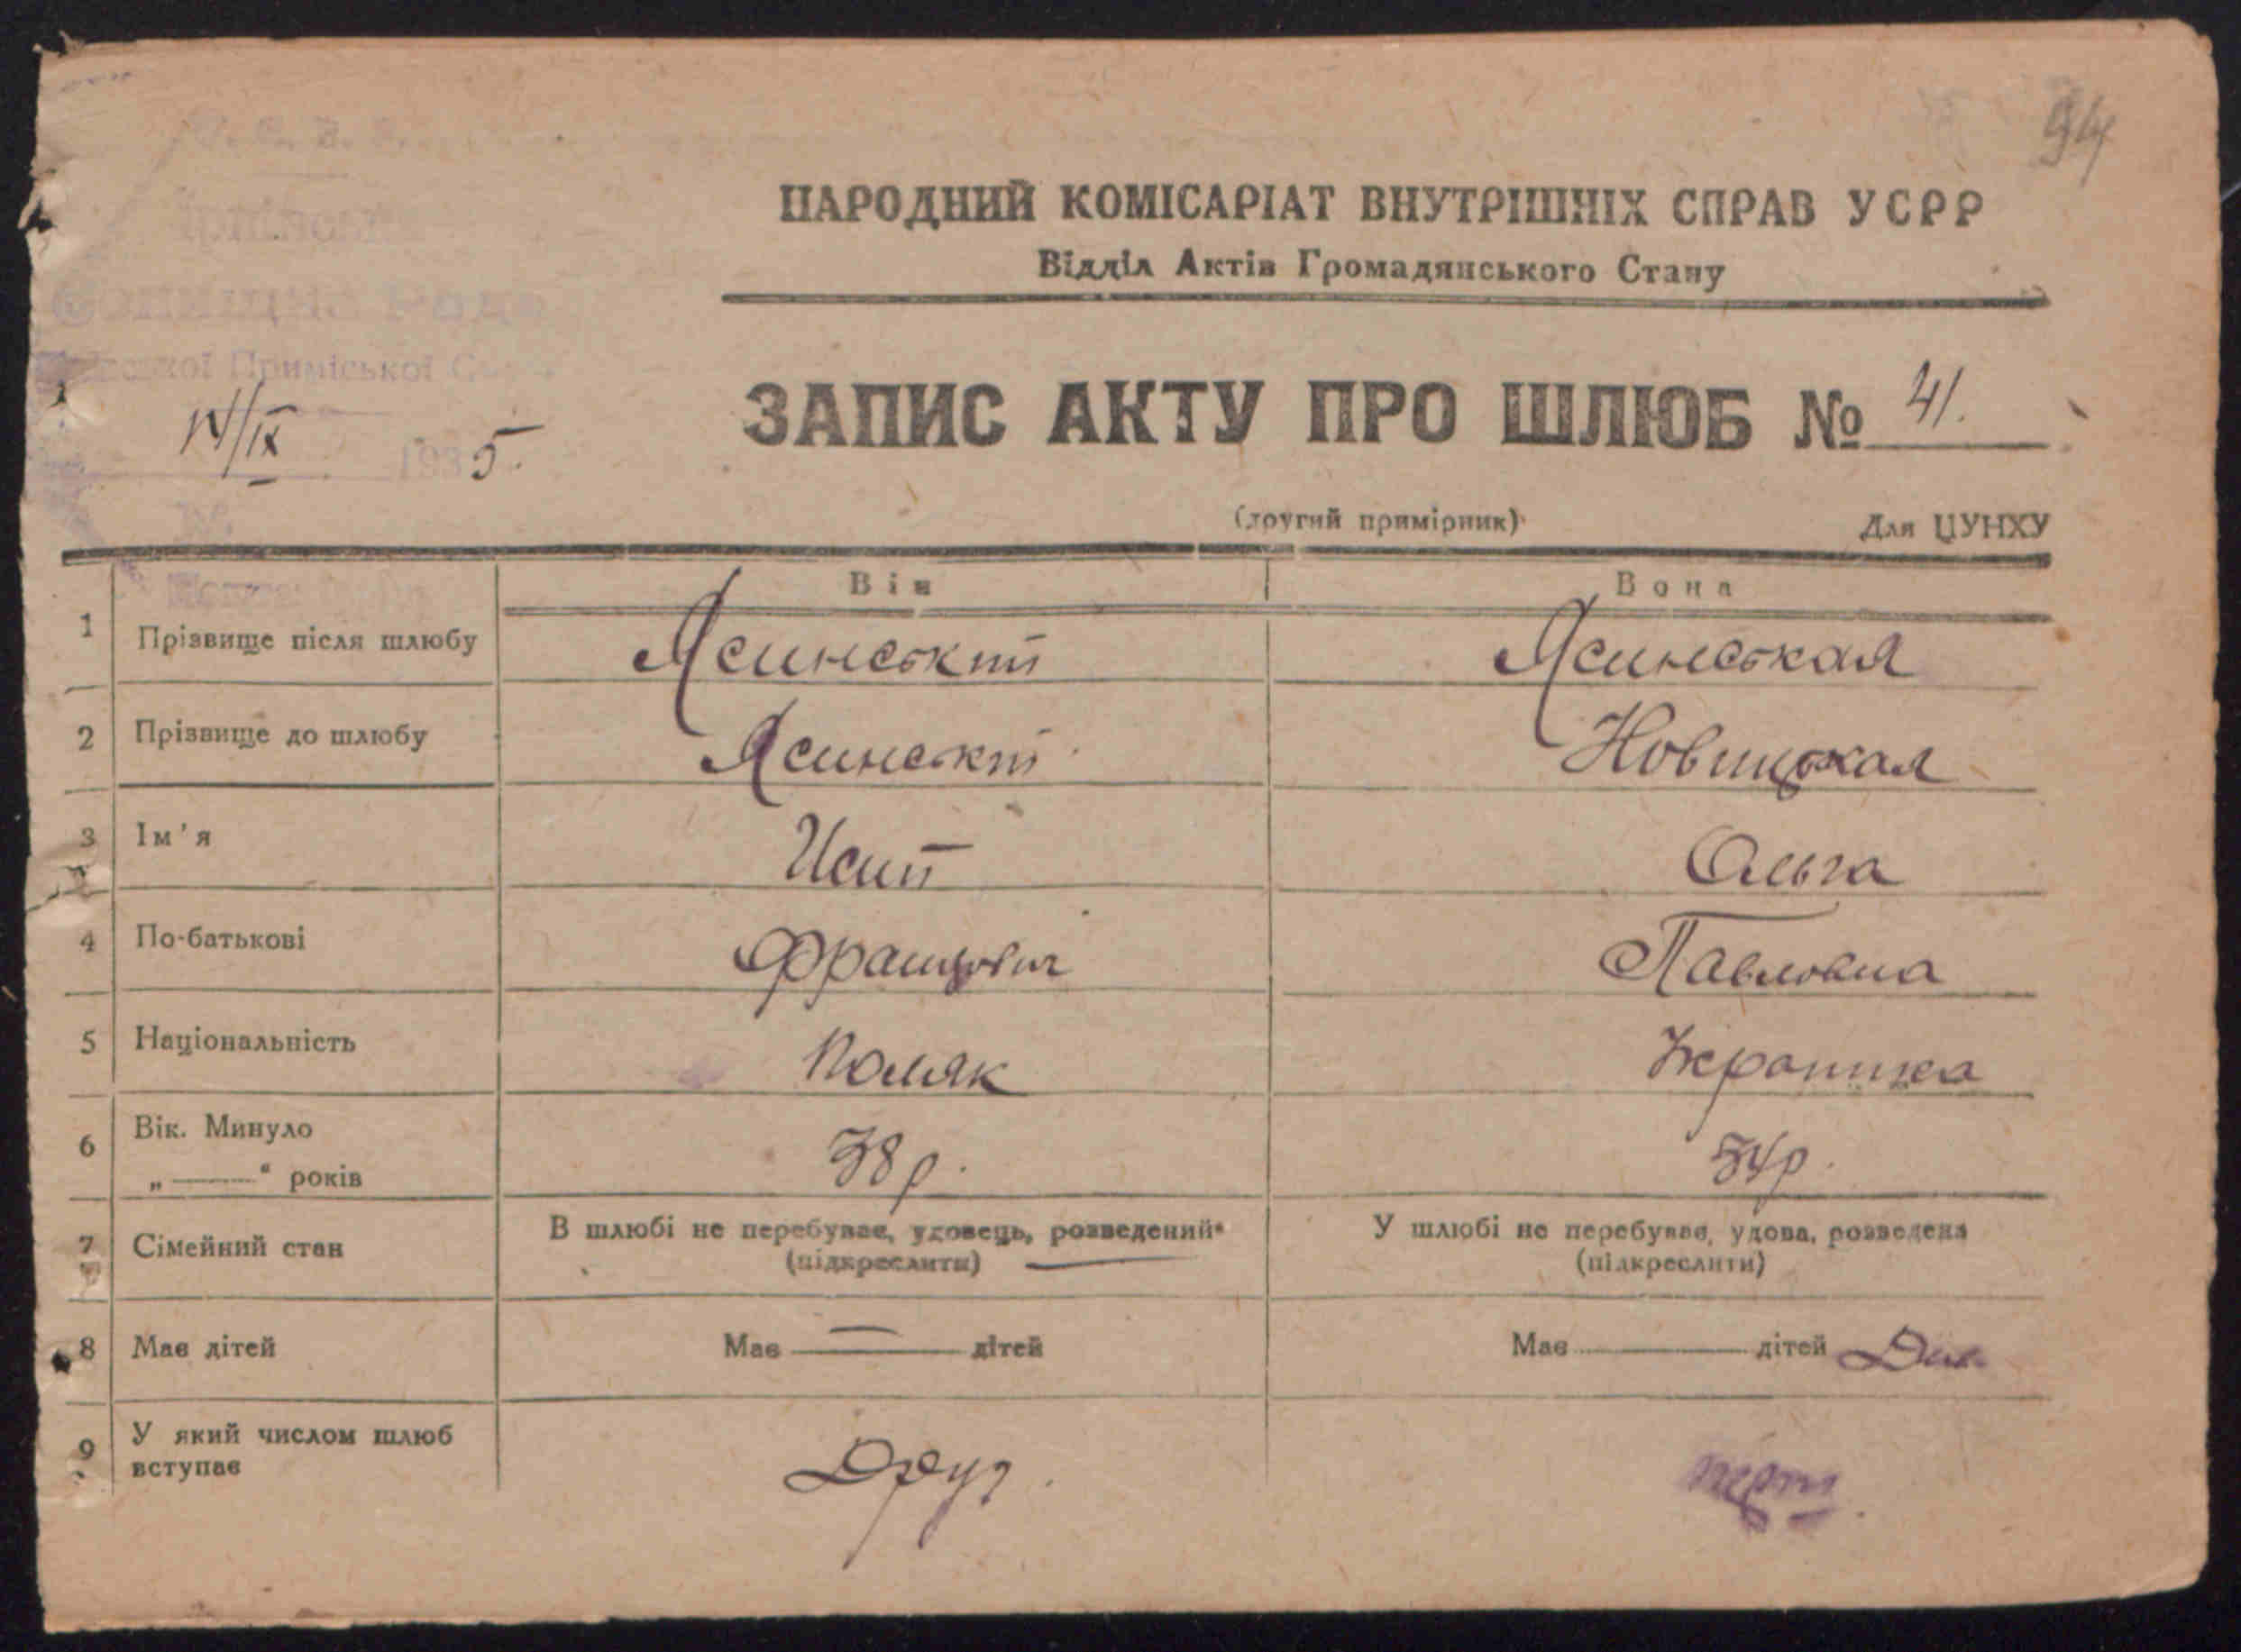 94
НАРОДНИЙ КОМІСАРІАТ ВНУТРІШНІХ СПРАВ УСРР
Відділ Актів Громадянського Стану
Приміської
ЗАПИС АКТУ ПРО ШЛЮБ № 41.
/IX 1935.
(другий примірник) Для ЦУНХУ
Він Вона
1 Прізвище після шлюбу Ясинський Ясинськая
2 Прізвище до шлюбу Ясинский Новицькая
3 Ім'я Исип Ольга
4 По-батькові Францович Павловна
5 Національність Поляк Украинка
6 Вік. Минуло
„ — “ років 38 р. 34 р.
7 Сімейний стан В шлюбі не перебуває, удовець, розведений У шлюбі не перебуває, удова, розведена
(підкреслити) (підкреслити)
8 Має дітей Має — дітей Має дітей
9 У який числом шлюб
вступає Друг.